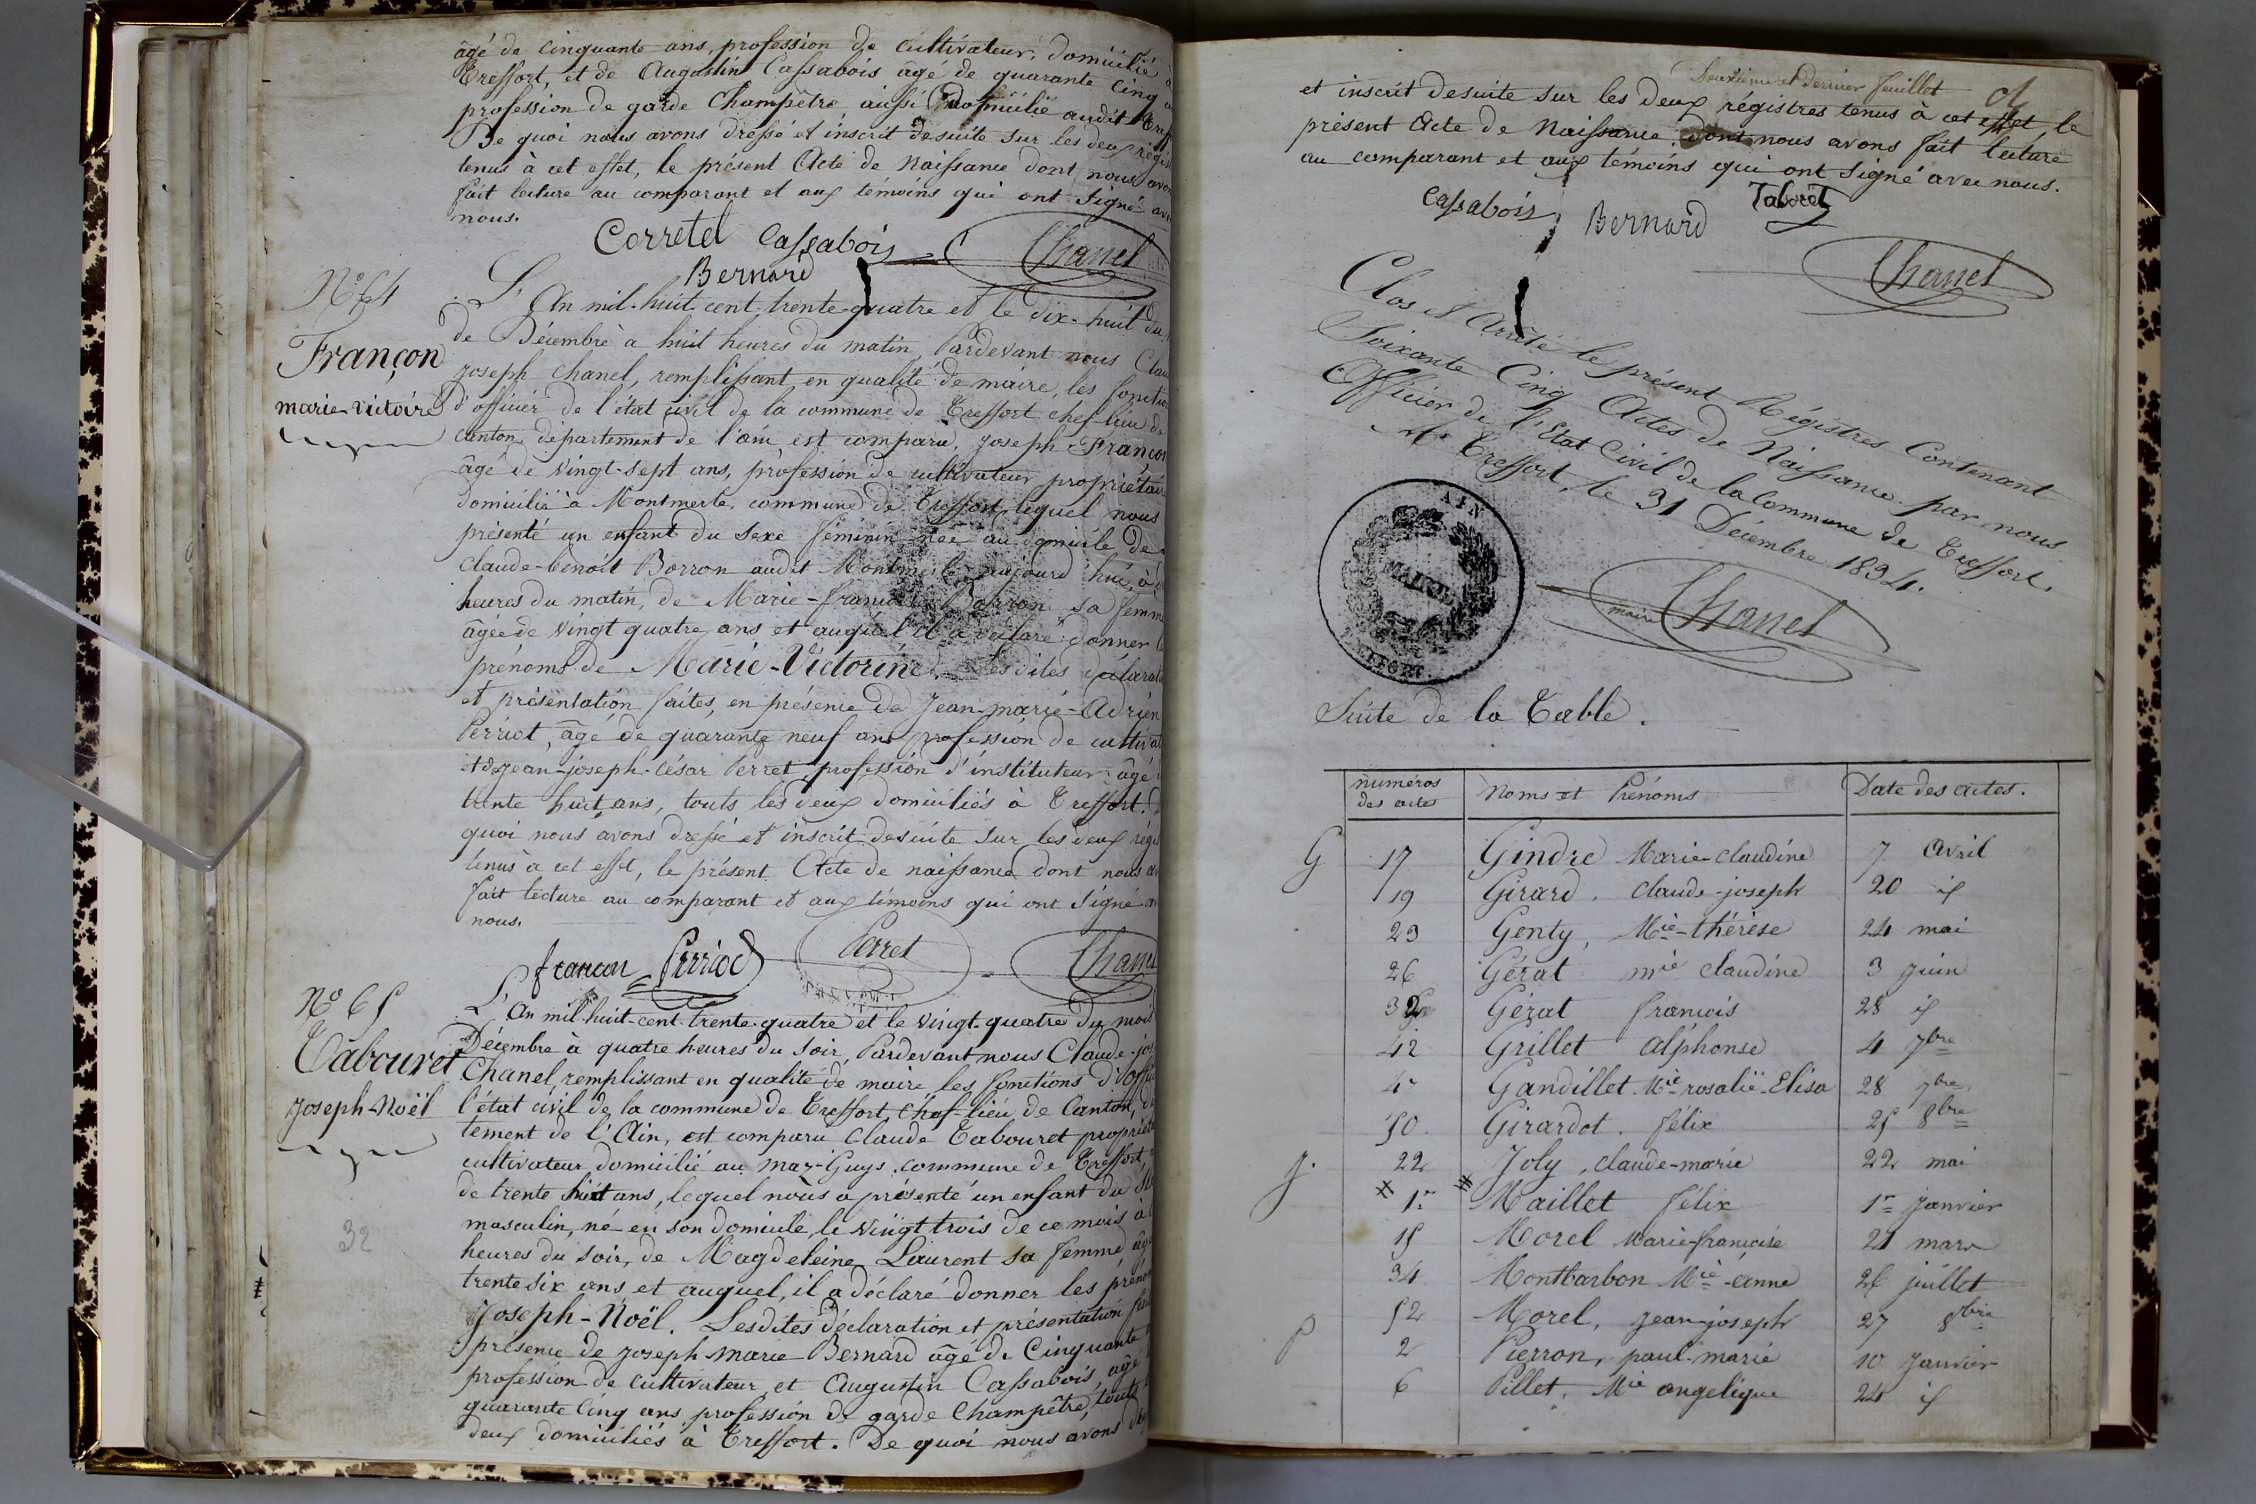 âgé de cinquante ans, profession de cultivateur, domicilié à
Treffort, et de Augustin Cassabois âgé de quarante cinq
profession de garde champêtre aussi domicilié audit
De quoi nous avons dressé et inscrit desuite sur les deux
tenus à cet effet, le présent Acte de Naissance dont nous
fait lecture au comparant et aux témoins qui ont signé
nous.
Corretel Cassabois Chanel
Bernard
N° 64
Françon
marie-victoire
L'An mil-huit-cent-trente-quatre et le dix-huit du
de Décembre à huit heures du matin, Pardevant nous
joseph Chanel, remplissant, en qualité de maire, les
d'officier de l'état civil de la commune de Treffort chef-lieu de
canton, département de l'ain est comparu, joseph Françon
âgé de vingt-sept ans, profession de cultivateur propriétaire
domicilié à Montmerle, commune de Treffort, lequel nous
présenté un enfant du sexe féminin née au domicile de
Claude-benoît Borron audit Montmerle aujourd'hui, à
heures du matin, de Marie-françoise Borron sa femme
âgée de vingt quatre ans et auquel il a déclaré donner
prénoms de Marie-Victorine. Lesdites
et présentation faites, en présence de Jean-marie-Adrien
Perriot, âgé de quarante neuf ans profession de
et de jean-joseph-César Perret, profession d'instituteur âgé
trente huit ans, touts les deux domiciliés à Treffort.
quoi nous avons dressé et inscrit desuite sur les deux
tenus à cet effet, le présent Acte de naissance dont nous
fait lecture au comparant et aux témoins qui ont signé
nous.
françon Perriod Perret Chanel
N° 65
Tabouret
Joseph-Noël
L'An mil-huit-cent-trente-quatre et le vingt-quatre du mois
Décembre à quatre heures du soir, Pardevant nous Claude
Chanel, remplissant en qualité de maire les fonctions
l'état civil de la commune de Treffort, chef-lieu de Canton,
tement de l'Ain, est comparu Claude Tabouret
cultivateur, domicilié au maz-Guys, commune de Treffort,
de trente huit ans, lequel nous a présenté un enfant du
masculin, né en son domicile, le vingt trois de ce mois à
heures du soir, de Magdeleine Laurent sa femme
trente six ans et auquel, il a déclaré donner les
Joseph-Noël. Lesdites déclaration et présentation
présence de joseph marie Bernard âgé de Cinquante
profession de cultivateur et Augustin Cassabois, âgé
quarante cinq ans profession de garde Champêtre, touts
deux domiciliés à Treffort. De quoi nous avons
32
Deuxième et dernier feuillet
et inscrit desuite sur les deux régistres tenus à cet effet, le
présent Acte de Naissance dont nous avons fait lecture
au comparant et aux témoins qui ont signé avec nous.
Cassabois Bernard Taboret
Chanel
Clos et Arrêté le présent Régistres Contenant
Soixante Cinq Actes de Naissance par nous
Officier de l'Etat Civil de la Commune de Treffort.
A Treffort, le 31 Décembre 1834.
AIN
MAIRIE
TREFFORT
maire Chanel
Suite de la Table.
numéros des actes Noms et Prénoms Date des actes.
G 17 Gindre Marie-claudine 7 Avril
19 Girard. claude-joseph 20 id
23 Genty, Mie-thérèse 24 mai
26 Gérat mie claudine 3 juin
32 Gérat françois 28 id
42 Grillet alphonse 4 7bre
Gandillet Mie rosalie-Elisa 28 7bre
50 Girardot. félix 25 8bre
J. 22 Joly, claude-marie 22 mai
1er Maillet félix 1er janvier
15 Morel Marie-françoise 21 mars
34 Montbarbon Mie-anne 26 juillet
52 Morel, jean-joseph 27 8bre
P 2 Pierron, paul-marie 10 janvier
6 Pillet, Mie angelique 24 id